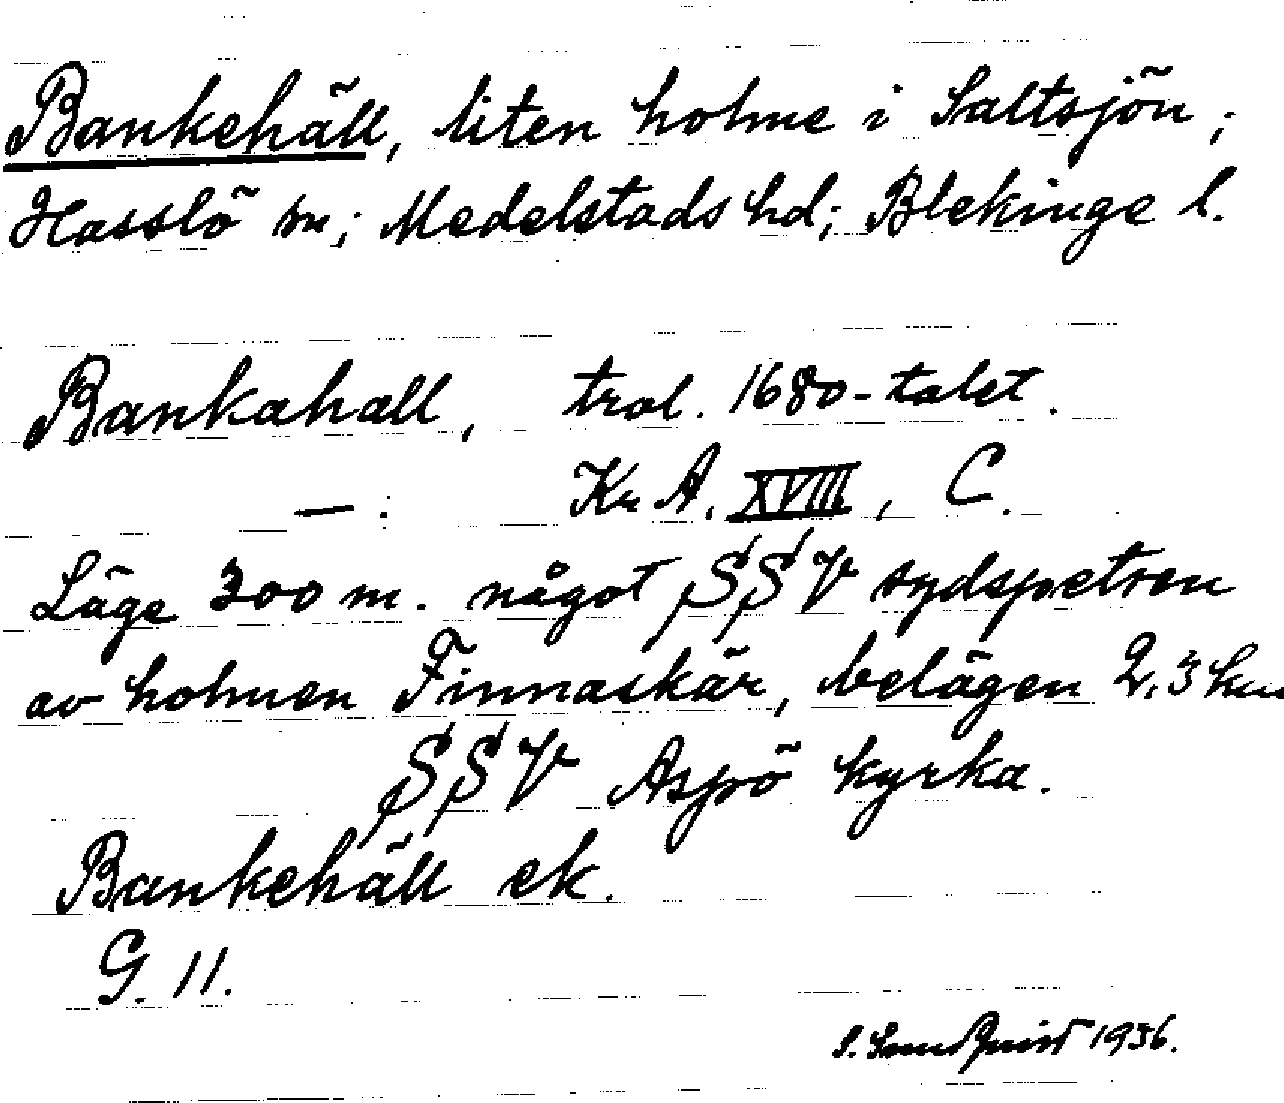 Bankehäll, liten holme i Saltsjön;
Hasslö sn; Medelstads hd; Blekinge l.
Bankahall, trol. 1680-talet.
— : Kr A. XVIII, C.
Läge 300 m. något SSV sydspetsen
av holmen Finnaskär, belägen 2,3 km
SSV Aspö kyrka.
Bankehäll ek.
G. 11.
S. Sundquist 1936.